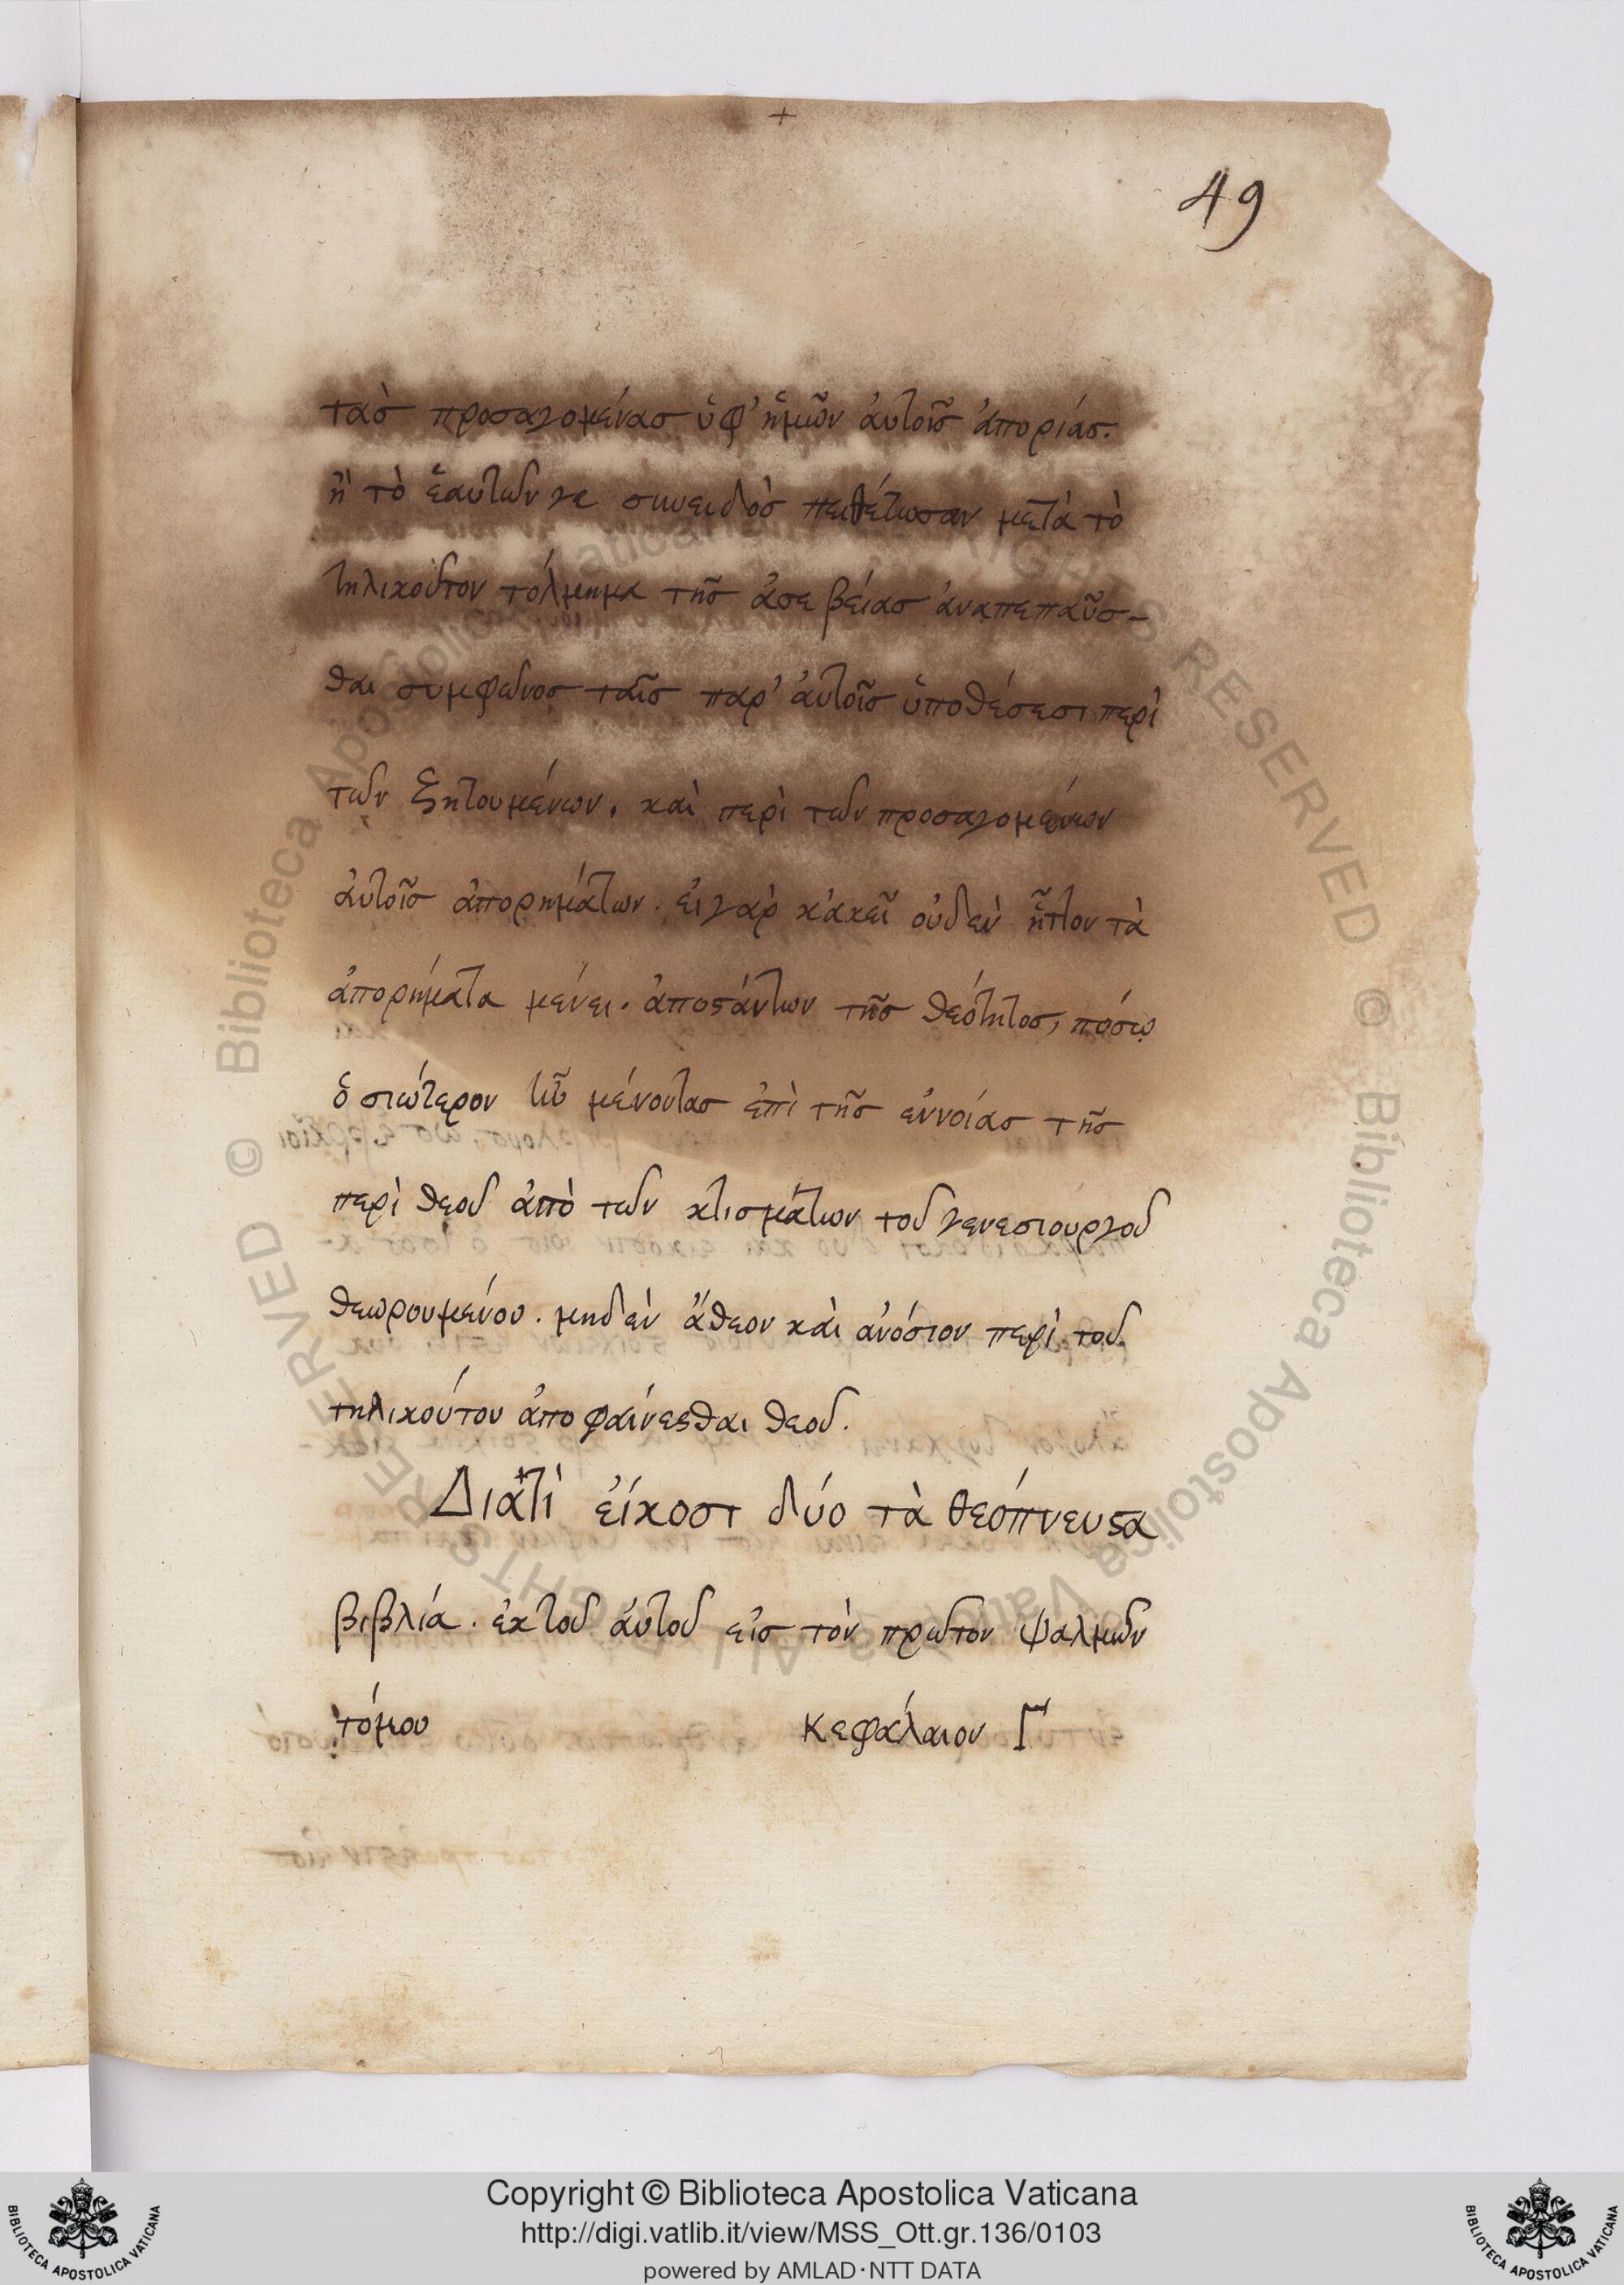 49
τὰσ προσαγομένασ ὑφ' ἡμῶν ἀυτοῖσ ἀπορίασ.
ἢ τὸ ἑαυτῶν γε συνειδὸσ πειθέτωσαν μετὰ τὸ
τηλικοῦτον τόλμημα τῆσ ἀσεβείασ ἀναπεπαῦσ-
θαι συμφώνοσ ταῖσ παρ' ἀυτοῖσ ὑποθέσεσι περὶ
τῶν ζητουμένων. καὶ περὶ τῶν προσαγομένων
ἀυτοῖσ ἀπορημάτων. εἰ γὰρ κἀκεῖ οὐδὲν ἧττον τὰ
ἀπορήματα μένει. ἀποϛάντων τῆσ θεότητοσ, πόσῳ
ὁσιώτερον τοῦ μένοντασ ἐπὶ τῆσ ἐννοίασ τῆσ
περὶ θεοῦ ἀπὸ τῶν κτισμάτων τοῦ γενεσιουργοῦ
θεωρουμένου. μηδὲν ἄθεον καὶ ἀνόσιον περὶ τοῦ
τηλικούτου ἀποφαίνεϛθαι θεοῦ.
Διατὶ εἴκοσι δύο τὰ θεόπνευϛα
βιβλία. ἐκ τοῦ ἀυτοῦ εἰσ τὸν πρῶτον ψαλμῶν
τόμου κεφάλαιον Γ
Copyright © Biblioteca Apostolica Vaticana
http://digi.vatlib.it/view/MSS_Ott.gr.136/0103
powered by AMLAD·NTT DATA
BIBLIOTECA APOSTOLICA VATICANA
BIBLIOTECA APOSTOLICA VATICANA